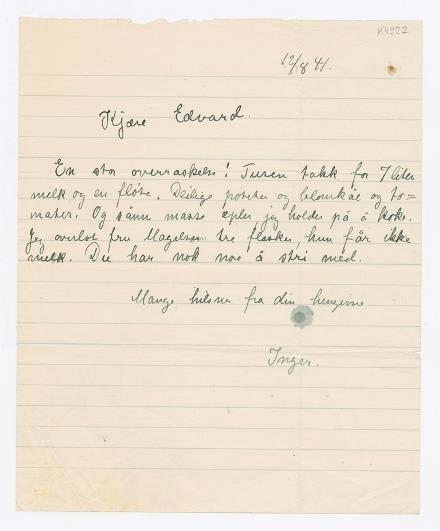 K4922
12/8 41.
Kjære Edvard.
En stor overraskelse! Tusen takk for 7 liter
melk og en fløte. Deilige poteter og blomkål og to=
mater. Og sånn masse epler jeg holder på å koke.
Jeg overlot fru Magelsen tre flasker, hun får ikke
melk. Du har nok noe å stri med.
Mange hilsner fra din hengivne
Inger.